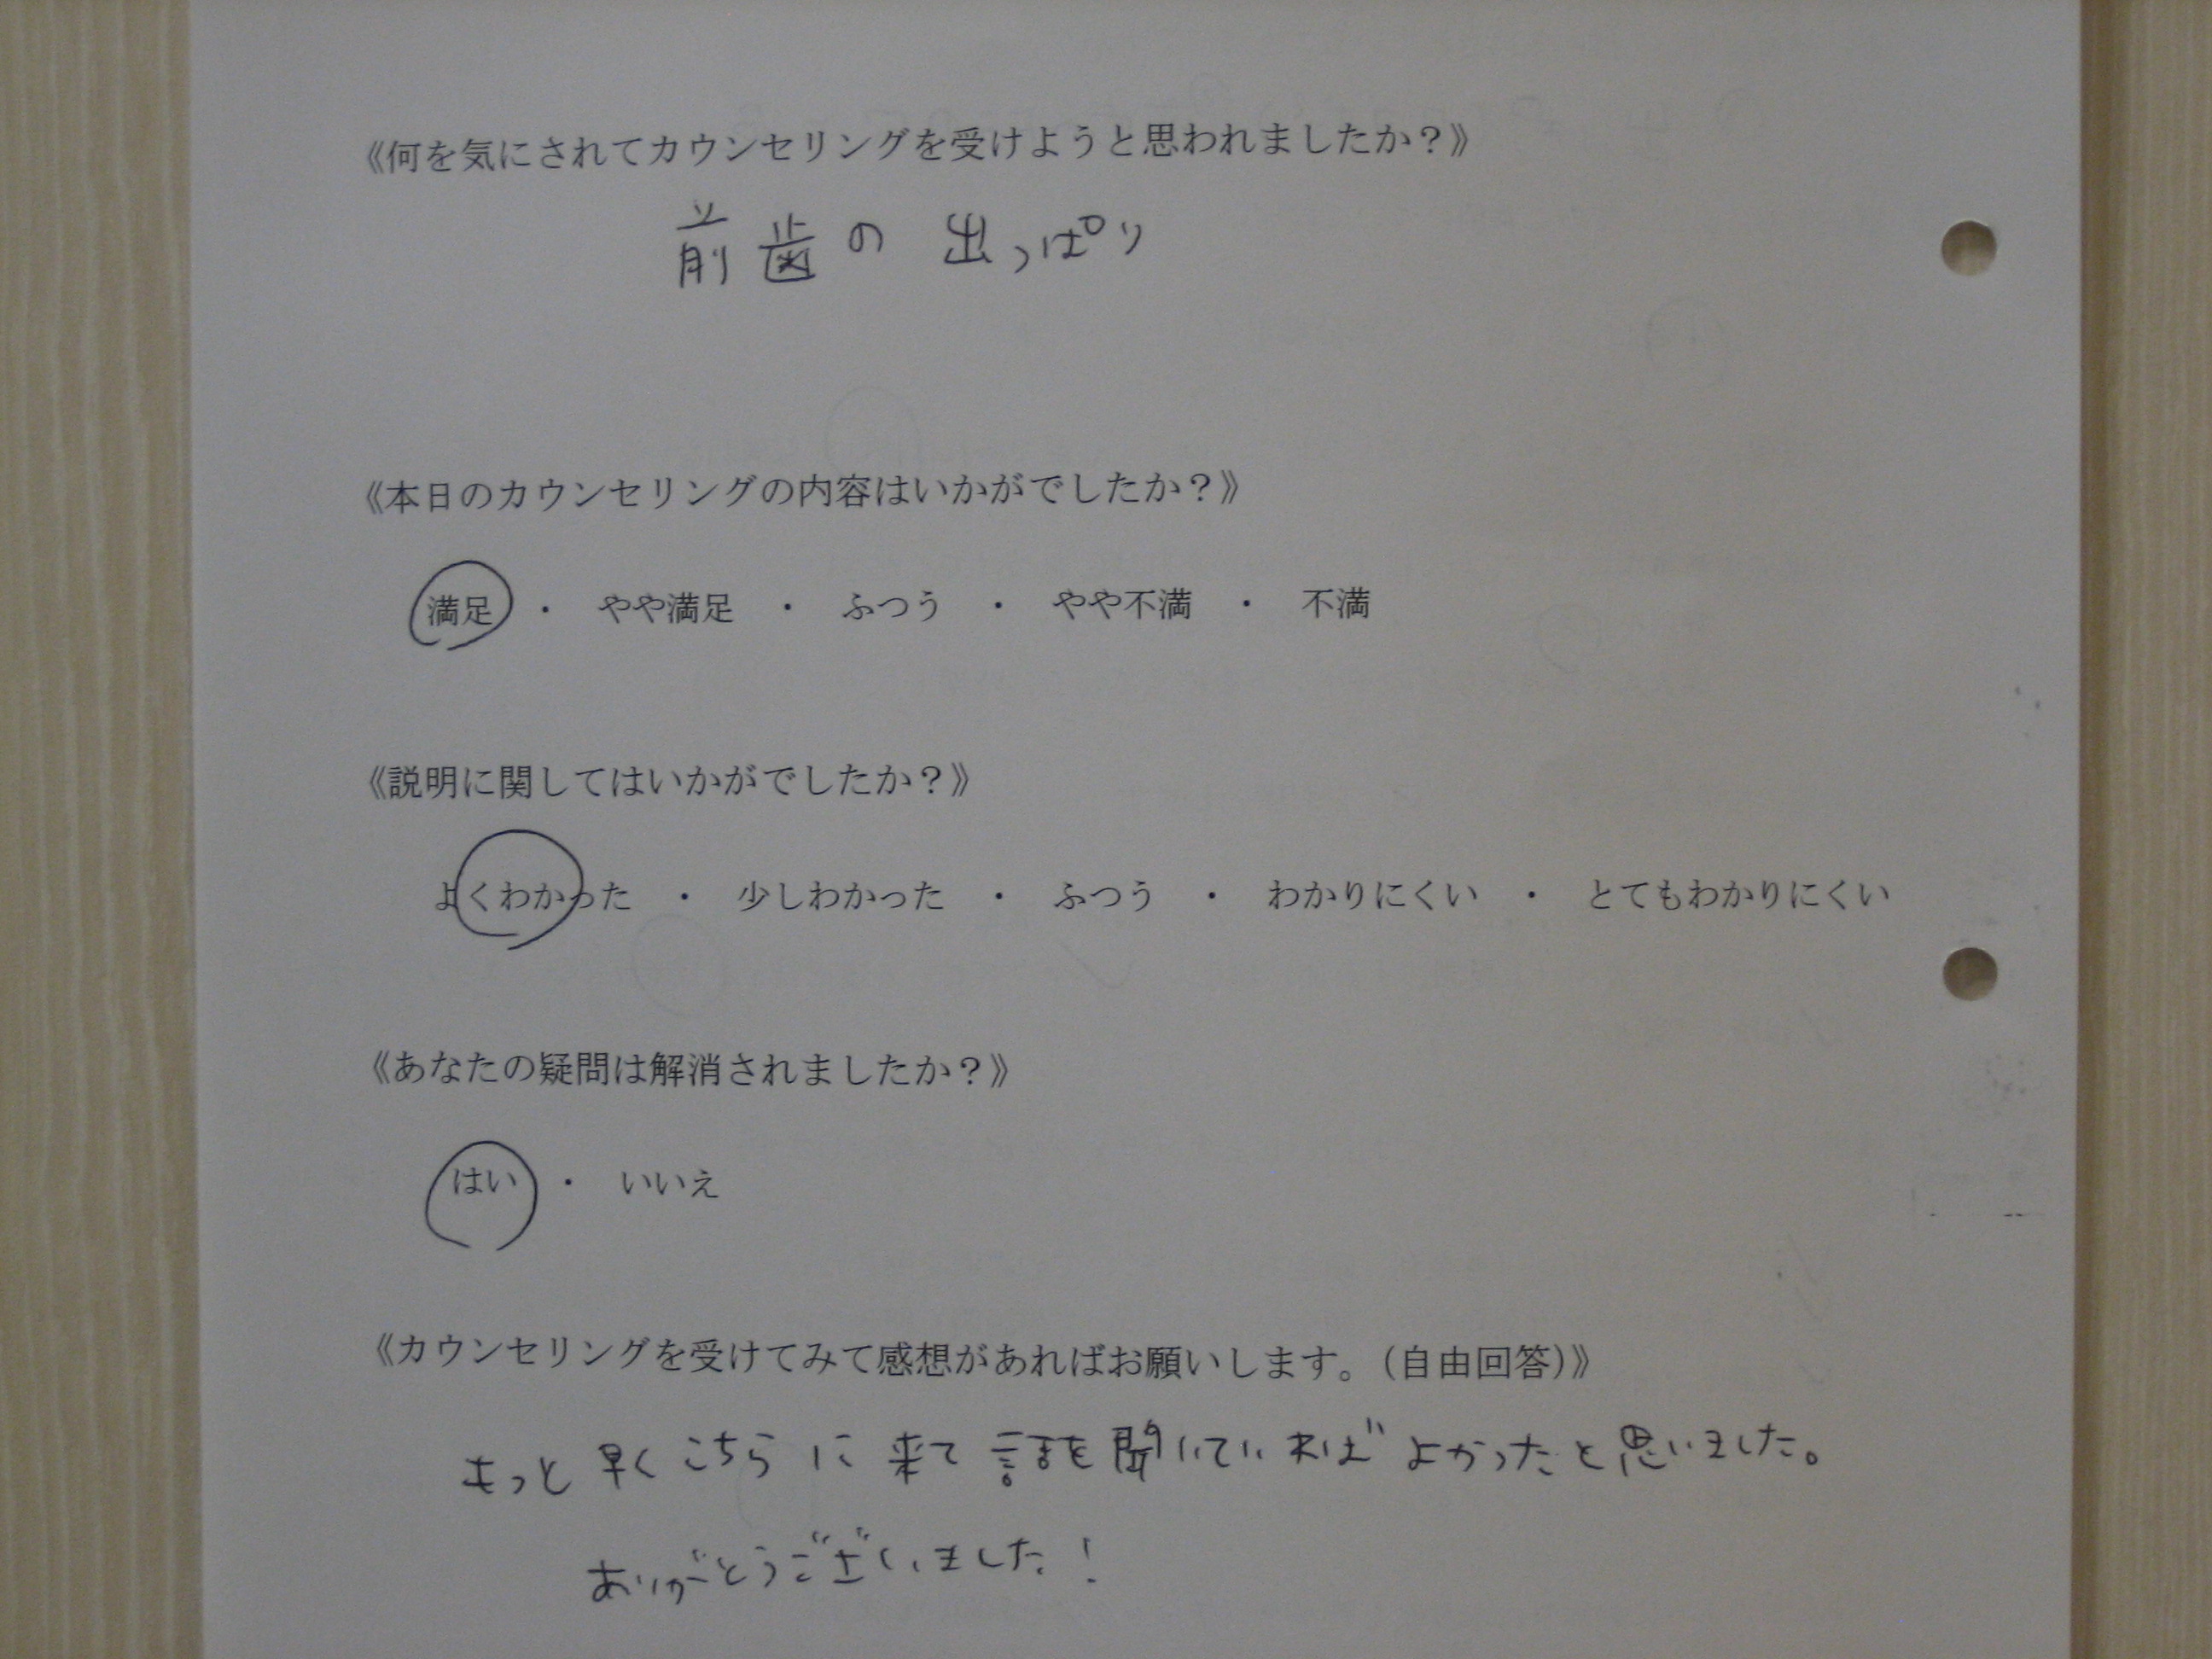 《何を気にされてカウンセリングを受けようと思われましたか？》
前歯の 出っぱり
《本日のカウンセリングの内容はいかがでしたか？》
満足 ・ やや満足 ・ ふつう ・ やや不満 ・ 不満
《説明に関してはいかがでしたか？》
よくわかった ・ 少しわかった ・ ふつう ・ わかりにくい ・ とてもわかりにくい
《あなたの疑問は解消されましたか？》
はい ・ いいえ
《カウンセリングを受けてみて感想があればお願いします。（自由回答）》
もっと早くこちらに来て話を聞いていればよかったと思いました。
ありがとうございました！